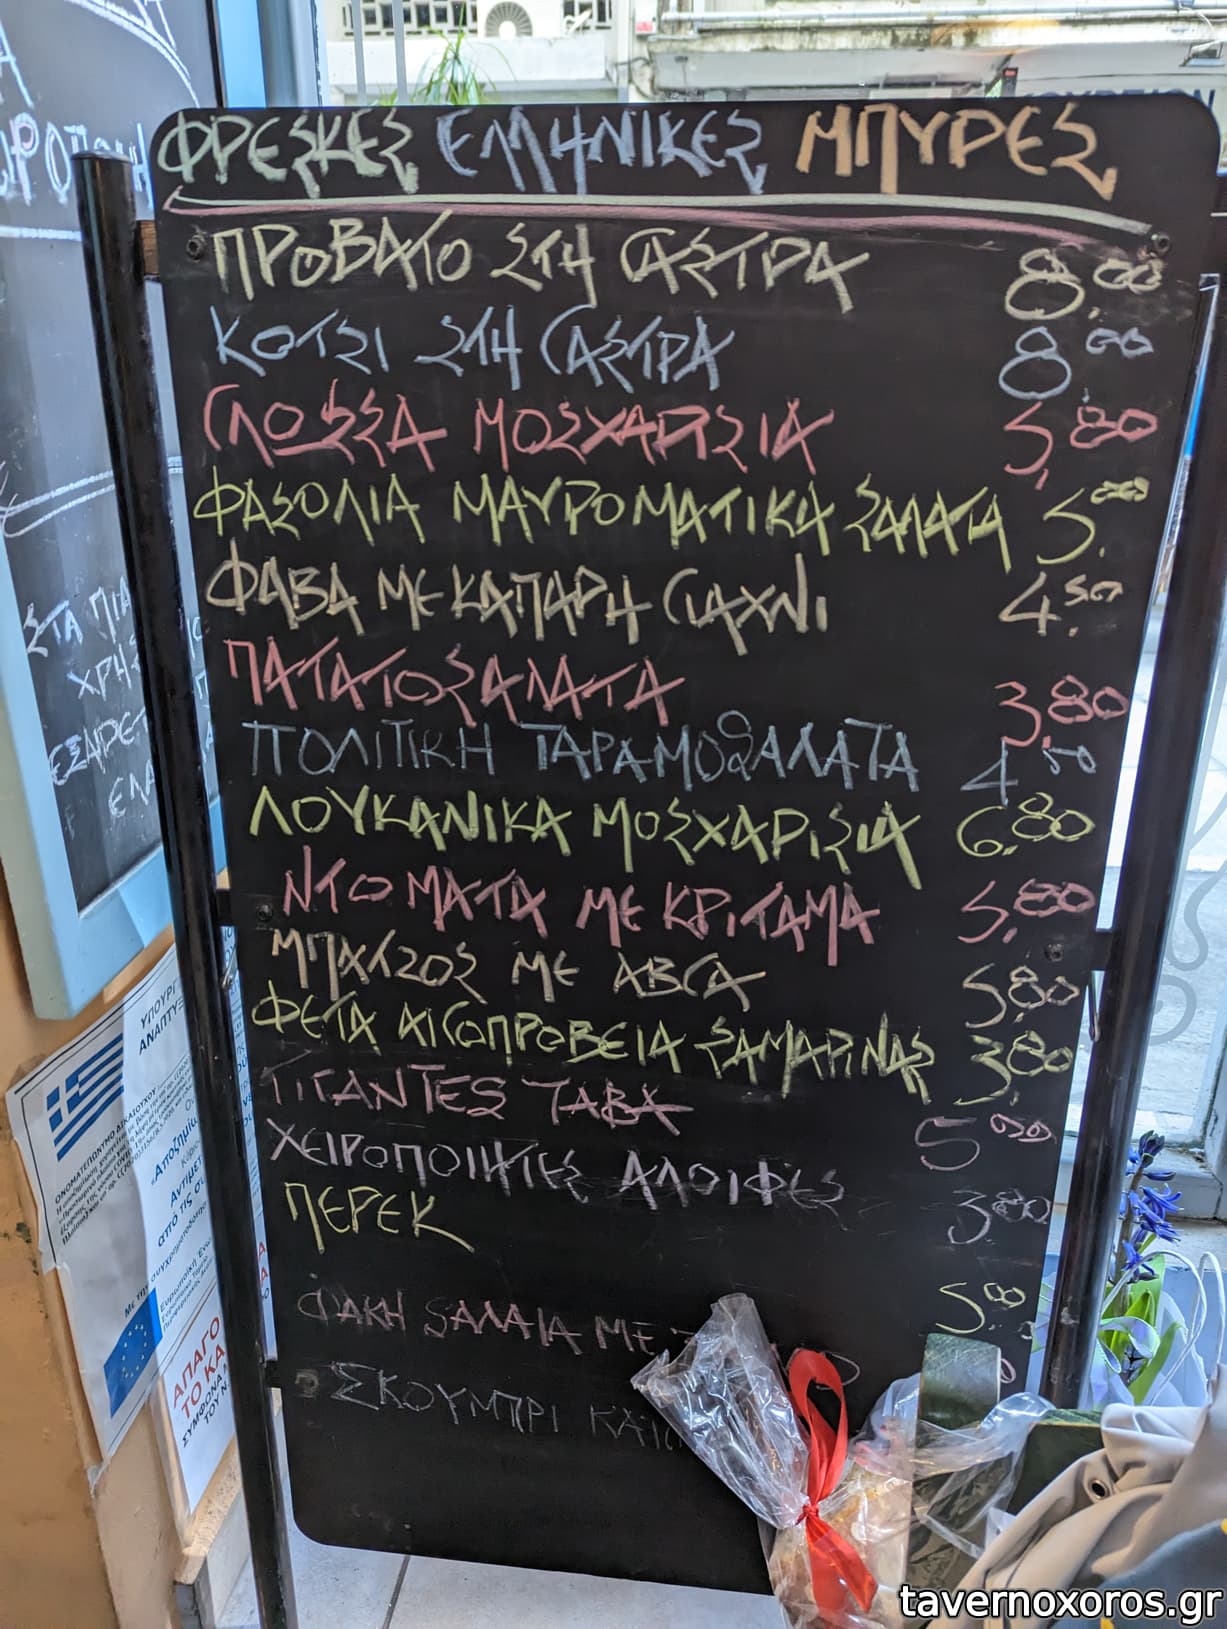 ΦΡΕΣΚΕΣ ΕΛΛΗΝΙΚΕΣ ΜΠΥΡΕΣ
ΠΡΟΒΑΤΟ ΣΤΗ ΓΑΣΤΡΑ 8.00
ΚΟΤΣΙ ΣΤΗ ΓΑΣΤΡΑ 8.00
ΓΛΩΣΣΑ ΜΟΣΧΑΡΙΣΙΑ 5,80
ΦΑΣΟΛΙΑ ΜΑΥΡΟΜΑΤΙΚΑ ΣΑΛΑΤΑ 5.00
ΦΑΒΑ ΜΕ ΚΑΠΑΡΗ ΓΙΑΧΝΙ 4.50
ΠΑΤΑΤΟΣΑΛΑΤΑ 3,80
ΠΟΛΙΤΙΚΗ ΤΑΡΑΜΟΣΑΛΑΤΑ 4.50
ΛΟΥΚΑΝΙΚΑ ΜΟΣΧΑΡΙΣΙΑ 6,80
ΝΤΟΜΑΤΑ ΜΕ ΚΡΙΤΑΜΑ 5,80
ΜΠΑΤΖΟΣ ΜΕ ΑΒΓΑ 5,80
ΦΕΤΑ ΑΙΓΟΠΡΟΒΕΙΑ ΣΑΜΑΡΙΝΑΣ 3,80
ΓΙΓΑΝΤΕΣ ΤΑΒΑ 5.00
ΧΕΙΡΟΠΟΙΗΤΕΣ ΑΛΟΙΦΕΣ 3.80
ΠΕΡΕΚ 5.80
ΦΑΚΗ ΣΑΛΑΤΑ ΜΕ
ΣΚΟΥΜΠΡΙ
ΣΤΑ
ΥΠΟΥΡΓ
ΑΝΑΠΤΥΞ
ΟΝΟΜΑΤΕΠΩΝΥΜΟ ΔΙΚΑΙΟΥΧΟΥ
«Αποζημίω
Αντιμετ
από τις συ
ΜΕ ΤΗΝ
συγχρηματοδότηση
ΑΠΑΓΟ
ΤΟ ΚΑ
ΣΥΜΦΩΝΑ
ΤΟΥ Ν
tavernoxoros.gr